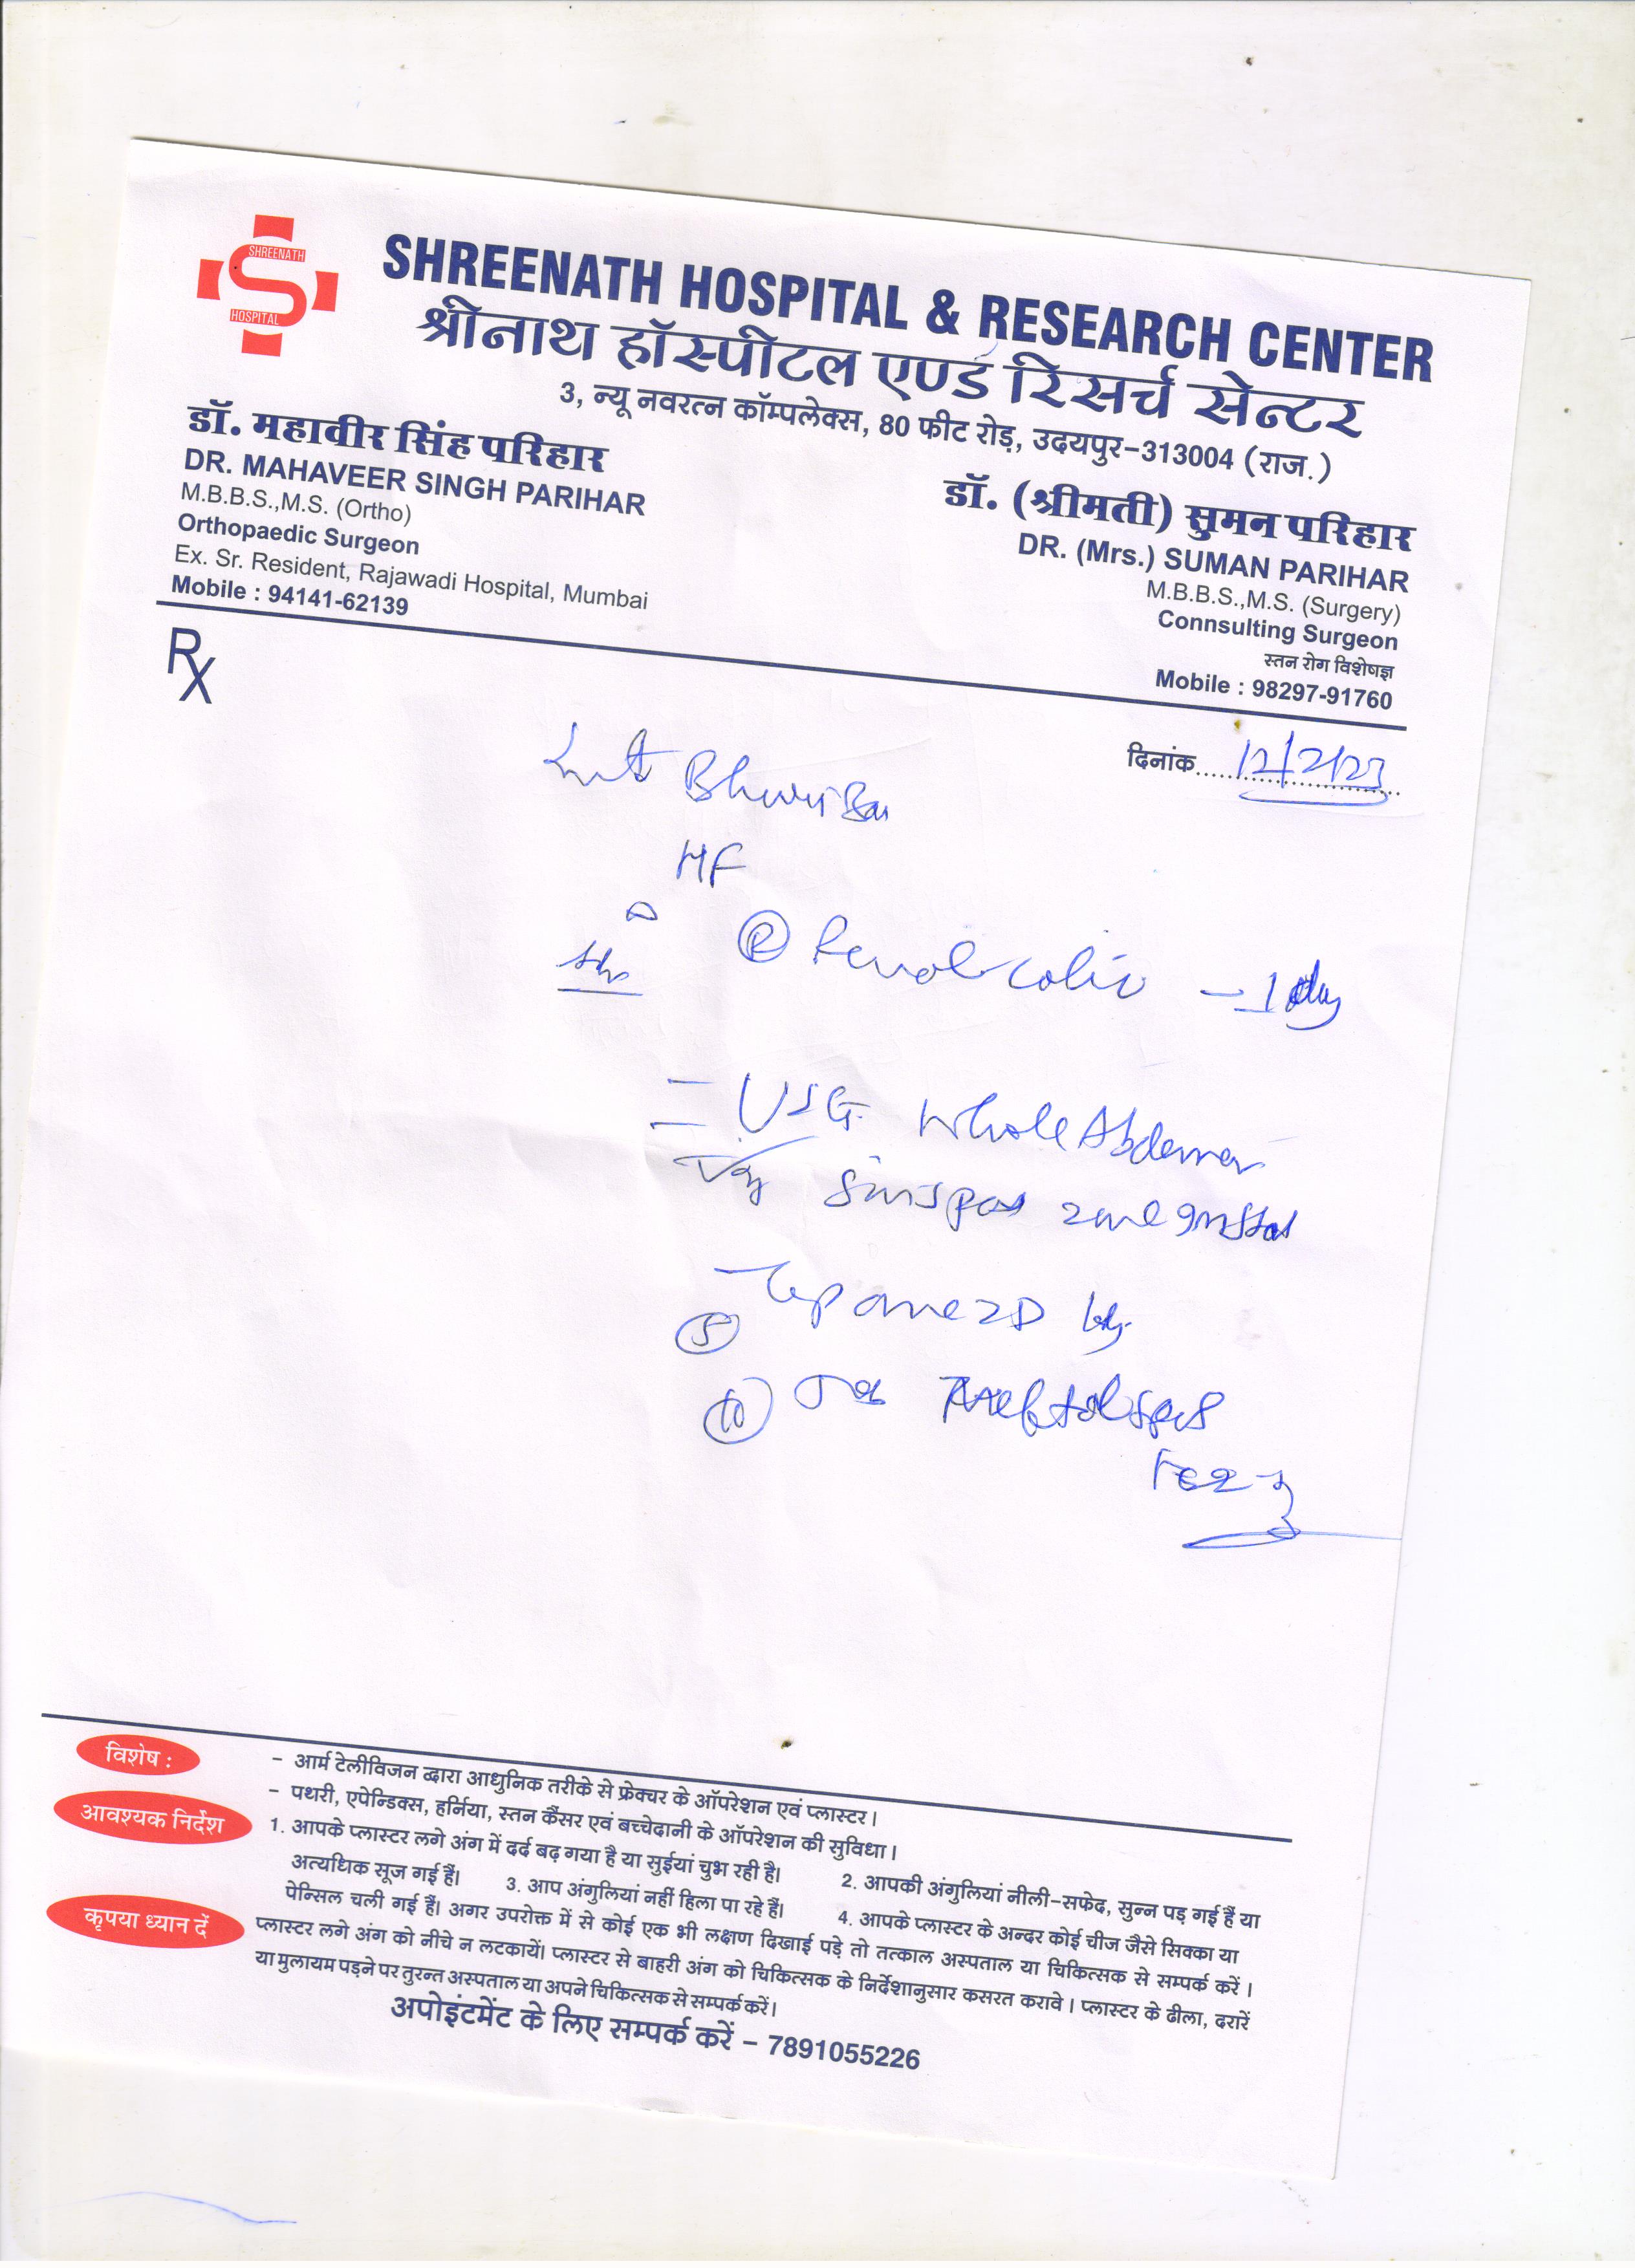 SHREENATH
HOSPITAL
SHREENATH HOSPITAL & RESEARCH CENTER
श्रीनाथ हॉस्पीटल एण्ड रिसर्च सेन्टर
3, न्यू नवरत्न कॉम्पलेक्स, 80 फीट रोड़, उदयपुर-313004 (राज.)
डॉ. महावीर सिंह परिहार
DR. MAHAVEER SINGH PARIHAR
M.B.B.S.,M.S. (Ortho)
Orthopaedic Surgeon
Ex. Sr. Resident, Rajawadi Hospital, Mumbai
Mobile : 94141-62139
डॉ. (श्रीमती) सुमन परिहार
DR. (Mrs.) SUMAN PARIHAR
M.B.B.S.,M.S. (Surgery)
Connsulting Surgeon
स्तन रोग विशेषज्ञ
Mobile : 98297-91760
Rx
दिनांक 12/2/23
Bhuri Bai
HF
R Renal colic - 1 day
= USG Whole Abdomen
2
5
10 Meftal spas
विशेष :
- आर्म टेलीविजन द्वारा आधुनिक तरीके से फ्रेक्चर के ऑपरेशन एवं प्लास्टर।
- पथरी, एपेन्डिक्स, हर्निया, स्तन कैंसर एवं बच्चेदानी के ऑपरेशन की सुविधा।
आवश्यक निर्देश
1. आपके प्लास्टर लगे अंग में दर्द बढ़ गया है या सुईयां चुभ रही है। 2. आपकी अंगुलियां नीली-सफेद, सुन्न पड़ गई हैं या
अत्यधिक सूज गई हैं। 3. आप अंगुलियां नहीं हिला पा रहे हैं। 4. आपके प्लास्टर के अन्दर कोई चीज जैसे सिक्का या
पेन्सिल चली गई हैं। अगर उपरोक्त में से कोई एक भी लक्षण दिखाई पड़े तो तत्काल अस्पताल या चिकित्सक से सम्पर्क करें।
कृपया ध्यान दें
प्लास्टर लगे अंग को नीचे न लटकायें। प्लास्टर से बाहरी अंग को चिकित्सक के निर्देशानुसार कसरत करावे। प्लास्टर के ढीला, दरारें
या मुलायम पड़ने पर तुरन्त अस्पताल या अपने चिकित्सक से सम्पर्क करें।
अपोइंटमेंट के लिए सम्पर्क करें - 7891055226